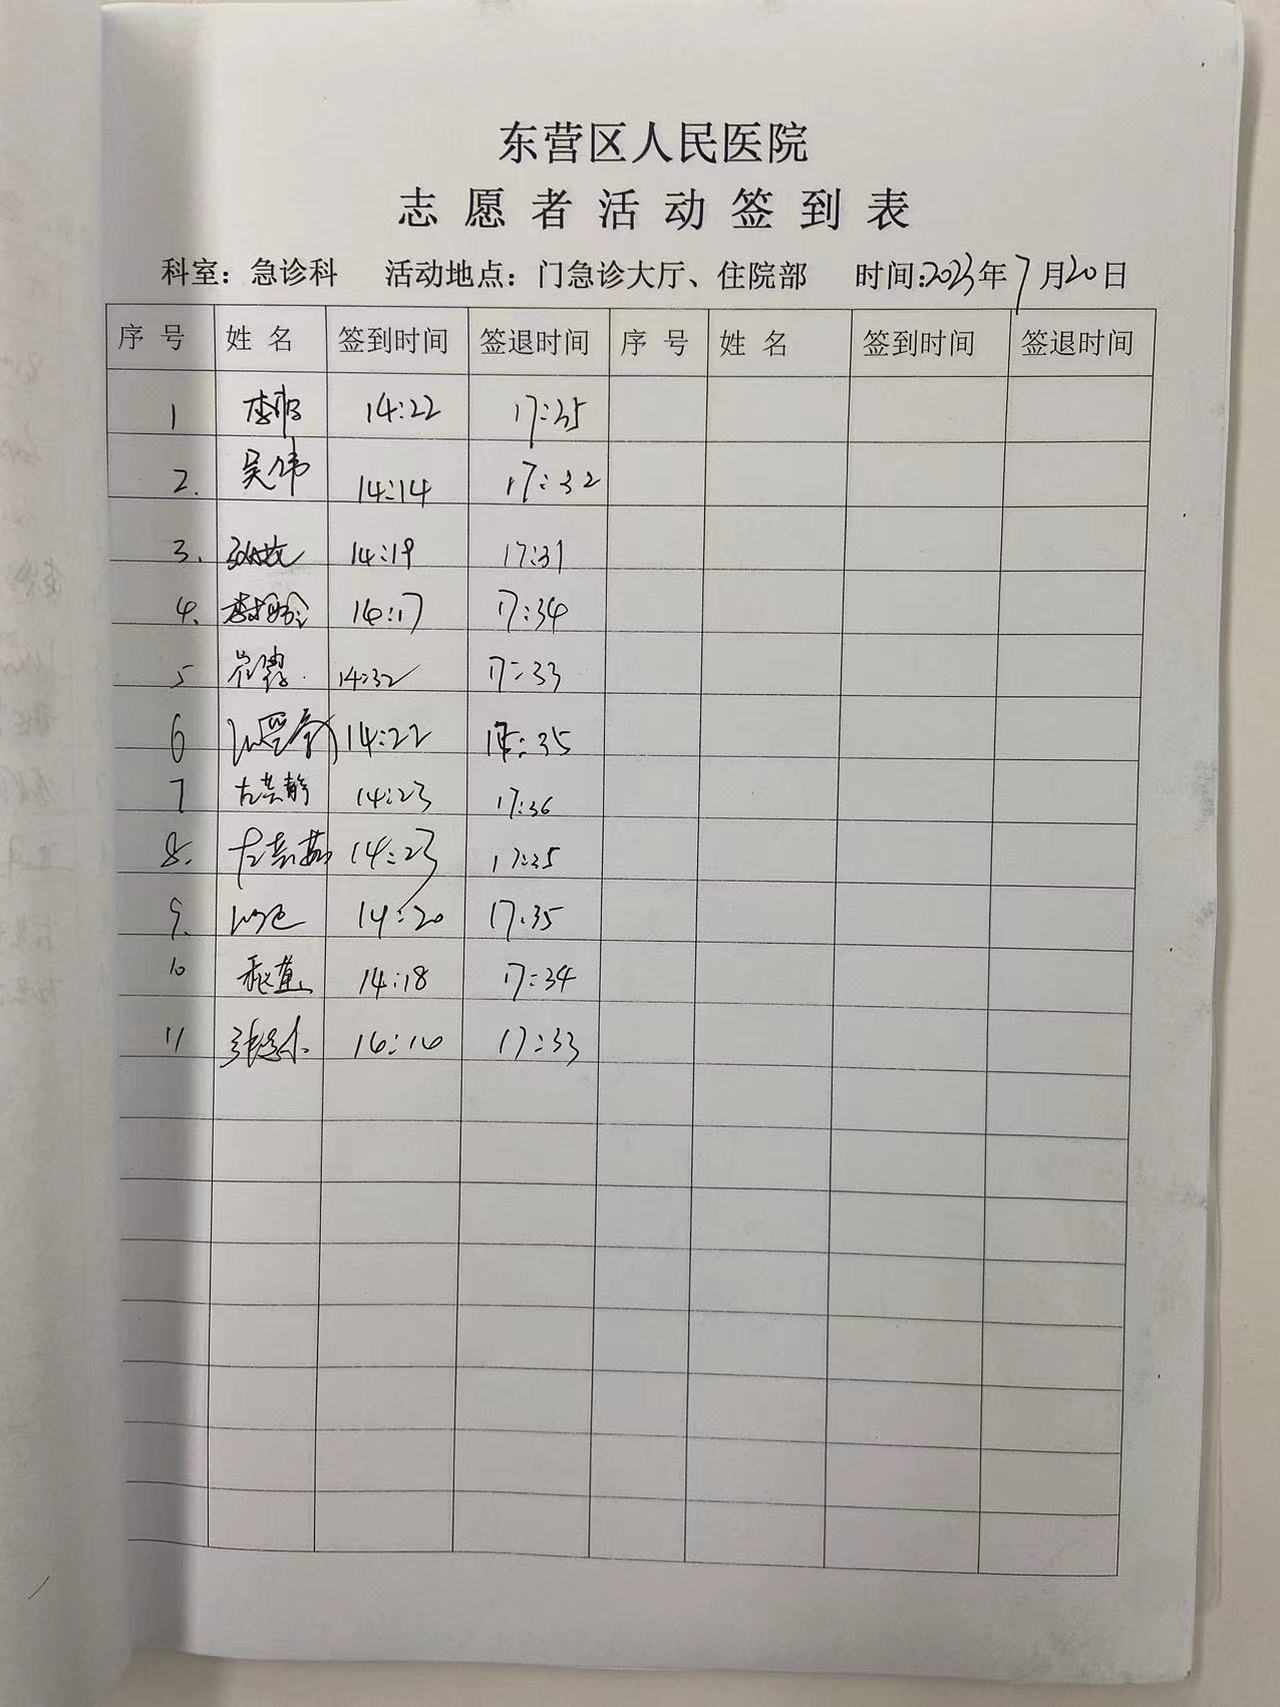 东营区人民医院
志愿者活动签到表
科室：急诊科 活动地点：门急诊大厅、住院部 时间:2023年7月20日
序号 姓名 签到时间 签退时间 序号 姓名 签到时间 签退时间
1 14:22 17:35
2. 吴伟 14:14 17:32
3. 14:19 17:31
4. 14:17 17:34
5 14:32 17:33
6 14:22 17:35
7 左芸静 14:23 17:36
8. 14:23 17:35
9. 14:20 17:35
10 14:18 17:34
11 14:14 17:33